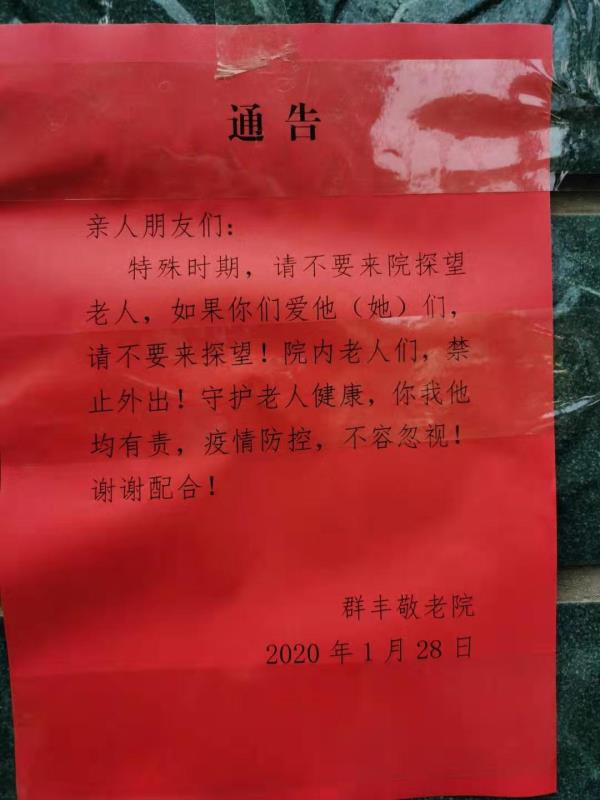 通告
亲人朋友们：
特殊时期，请不要来院探望
老人，如果你们爱他（她）们，
请不要来探望！院内老人们，禁
止外出！守护老人健康，你我他
均有责，疫情防控，不容忽视！
谢谢配合！
群丰敬老院
2020年1月28日